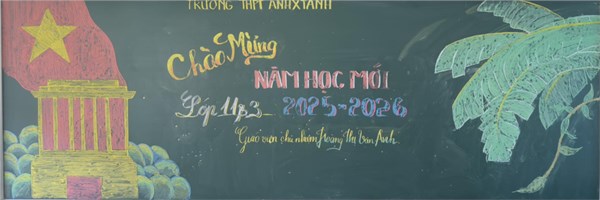 TRƯỜNG THPT ANHXTANH
Chào Mừng
NĂM HỌC MỚI
Lớp 11B3 2025-2026
Giáo viên chủ nhiệm Hoàng Thị Vân Anh